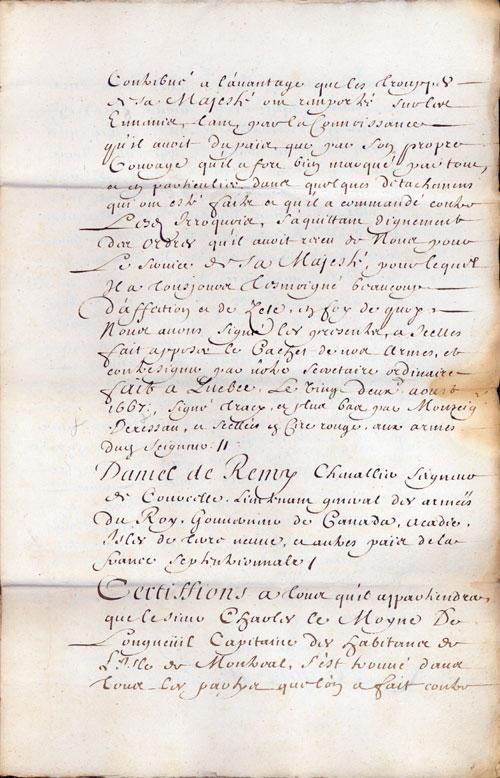 Contribué a lávantage que les trouppes
de sa Majesté ont remporté sur les
Ennemis, tant par la Connoissance
qu'il auoit du pais, que par son propre
Courage qu'il a fort bien marqué par tout,
et en particulier dans quelques détachemens
qui ont esté faits et qu'il a commandé contre
Lesd. Irroquois, s'aquittant dignement
des Ordres qu'il auoit receu de Nous pour
Le seruice de Sa Majesté, pour lequel
Il a tousjours tesmoigné beaucoup
d'affection et de Zele, en foy de quoy
Nous auons signé les presentes, a Icelles
fait apposer le Cachet de nos Armes, et
contresigner par nôtre Secretaire ordinaire
fait a Quebec. Le Vingt deux.e aoust
1667; signé Tracy, et plus bas par Monseig.r
et scellés en Cire rouge, aux armes
dud. Seigneur //
Daniel de Remy Cheuallier Seigneur
de Courcelle, Lieutenant general des armeés
du Roy, Gouuerneur de Canada, Acadie,
Isles de terre neuue, et autres pais de la
france septentrionnale /
Certiffions a tous qu'il appartiendra
que le sieur Charles le Moyne De
Longueüil Capitaine des habitans de
L'Isle de Montreal, s'est trouué dans
tous les partys que l'on a fait contre